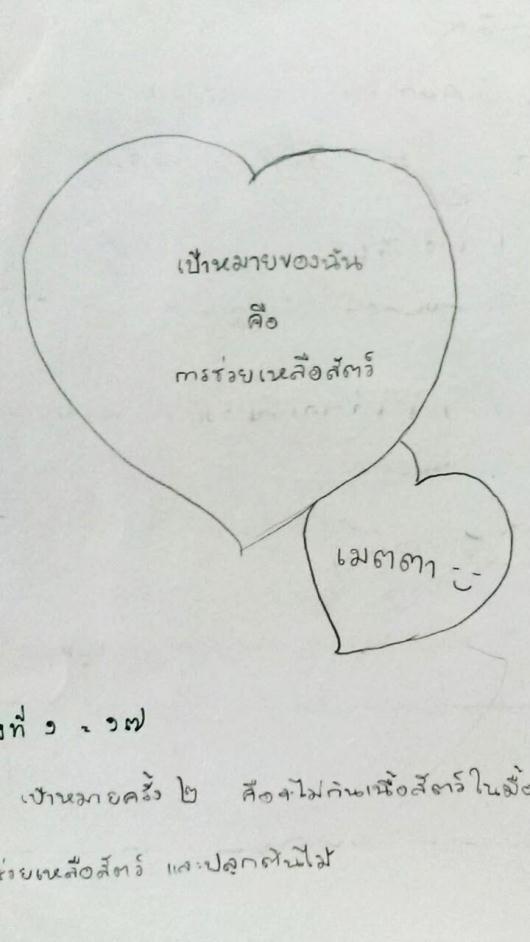 เป้าหมายของฉัน
คือ
การช่วยเหลือสัตว์
เมตตา
งที่ ๑ - ๑๗
เป้าหมายครั้ง ๒ คือจะไม่กินเนื้อสัตว์ในมื้อ
ช่วยเหลือสัตว์ และปลูกต้นไม้